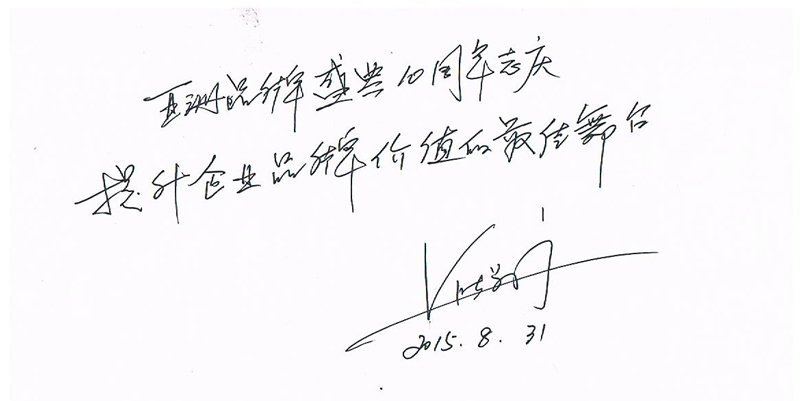 亚洲品牌盛典10周年志庆
提升企业品牌价值的最佳舞台
2015.8.31